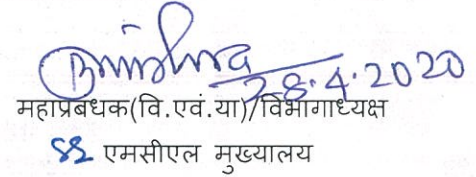 28.4.2020
महाप्रबंधक(वि.एवं.या)/विभागाध्यक्ष
एमसीएल मुख्यालय